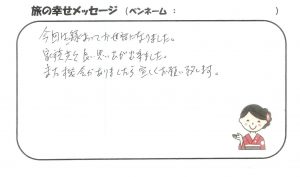 旅の幸せメッセージ (ペンネーム : )
今回は縁あってお世話になりました。
家族共々良い思い出が出来ました。
また機会がありましたら宜しくお願い致します。